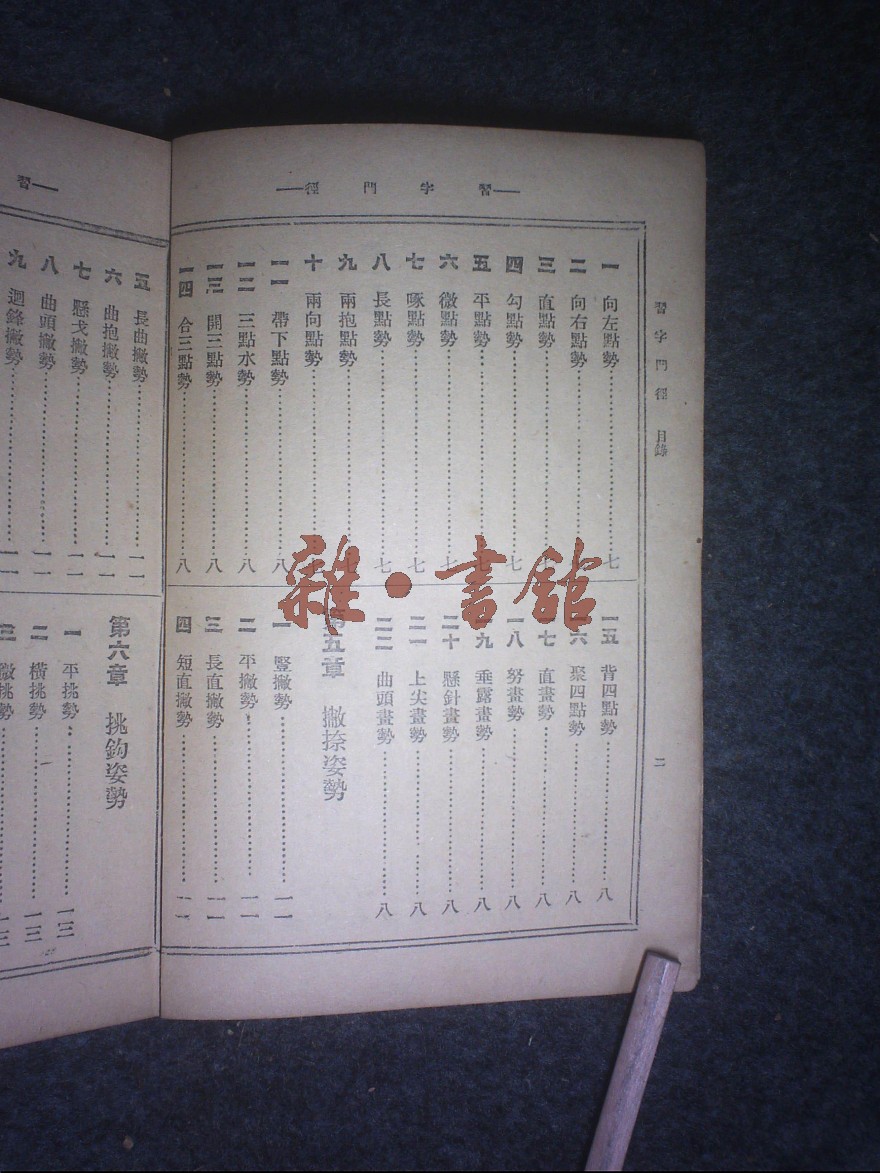 習字門徑
習字門徑 目錄
二
一 向左點勢 七
二 向右點勢
三 直點勢
四 勾點勢 七
五 平點勢 七
六 微點勢 七
七 啄點勢 七
八 長點勢 七
九 兩抱點勢
十 兩向點勢
一一 帶下點勢 八
一二 三點水勢 八
一三 開三點勢 八
一四 合三點勢 八
一五 背四點勢 八
一六 聚四點勢 八
一七 直畫勢 八
一八 努畫勢 八
一九 垂露畫勢 八
二十 懸針畫勢 八
二一 上尖畫勢 八
二二 曲頭畫勢 八
第五章 撇捺姿勢
一 豎撇勢 一一
二 平撇勢 一一
三 長直撇勢 一一
四 短直撇勢 一一
習
五 長曲撇勢 一一
六 曲抱撇勢 一一
七 懸戈撇勢 一一
八 曲頭撇勢 一一
九 迴鋒撇勢 一一
第六章 挑鈎姿勢
一 平挑勢 一三
二 橫挑勢 一三
三 微挑勢 一三
雜·書館